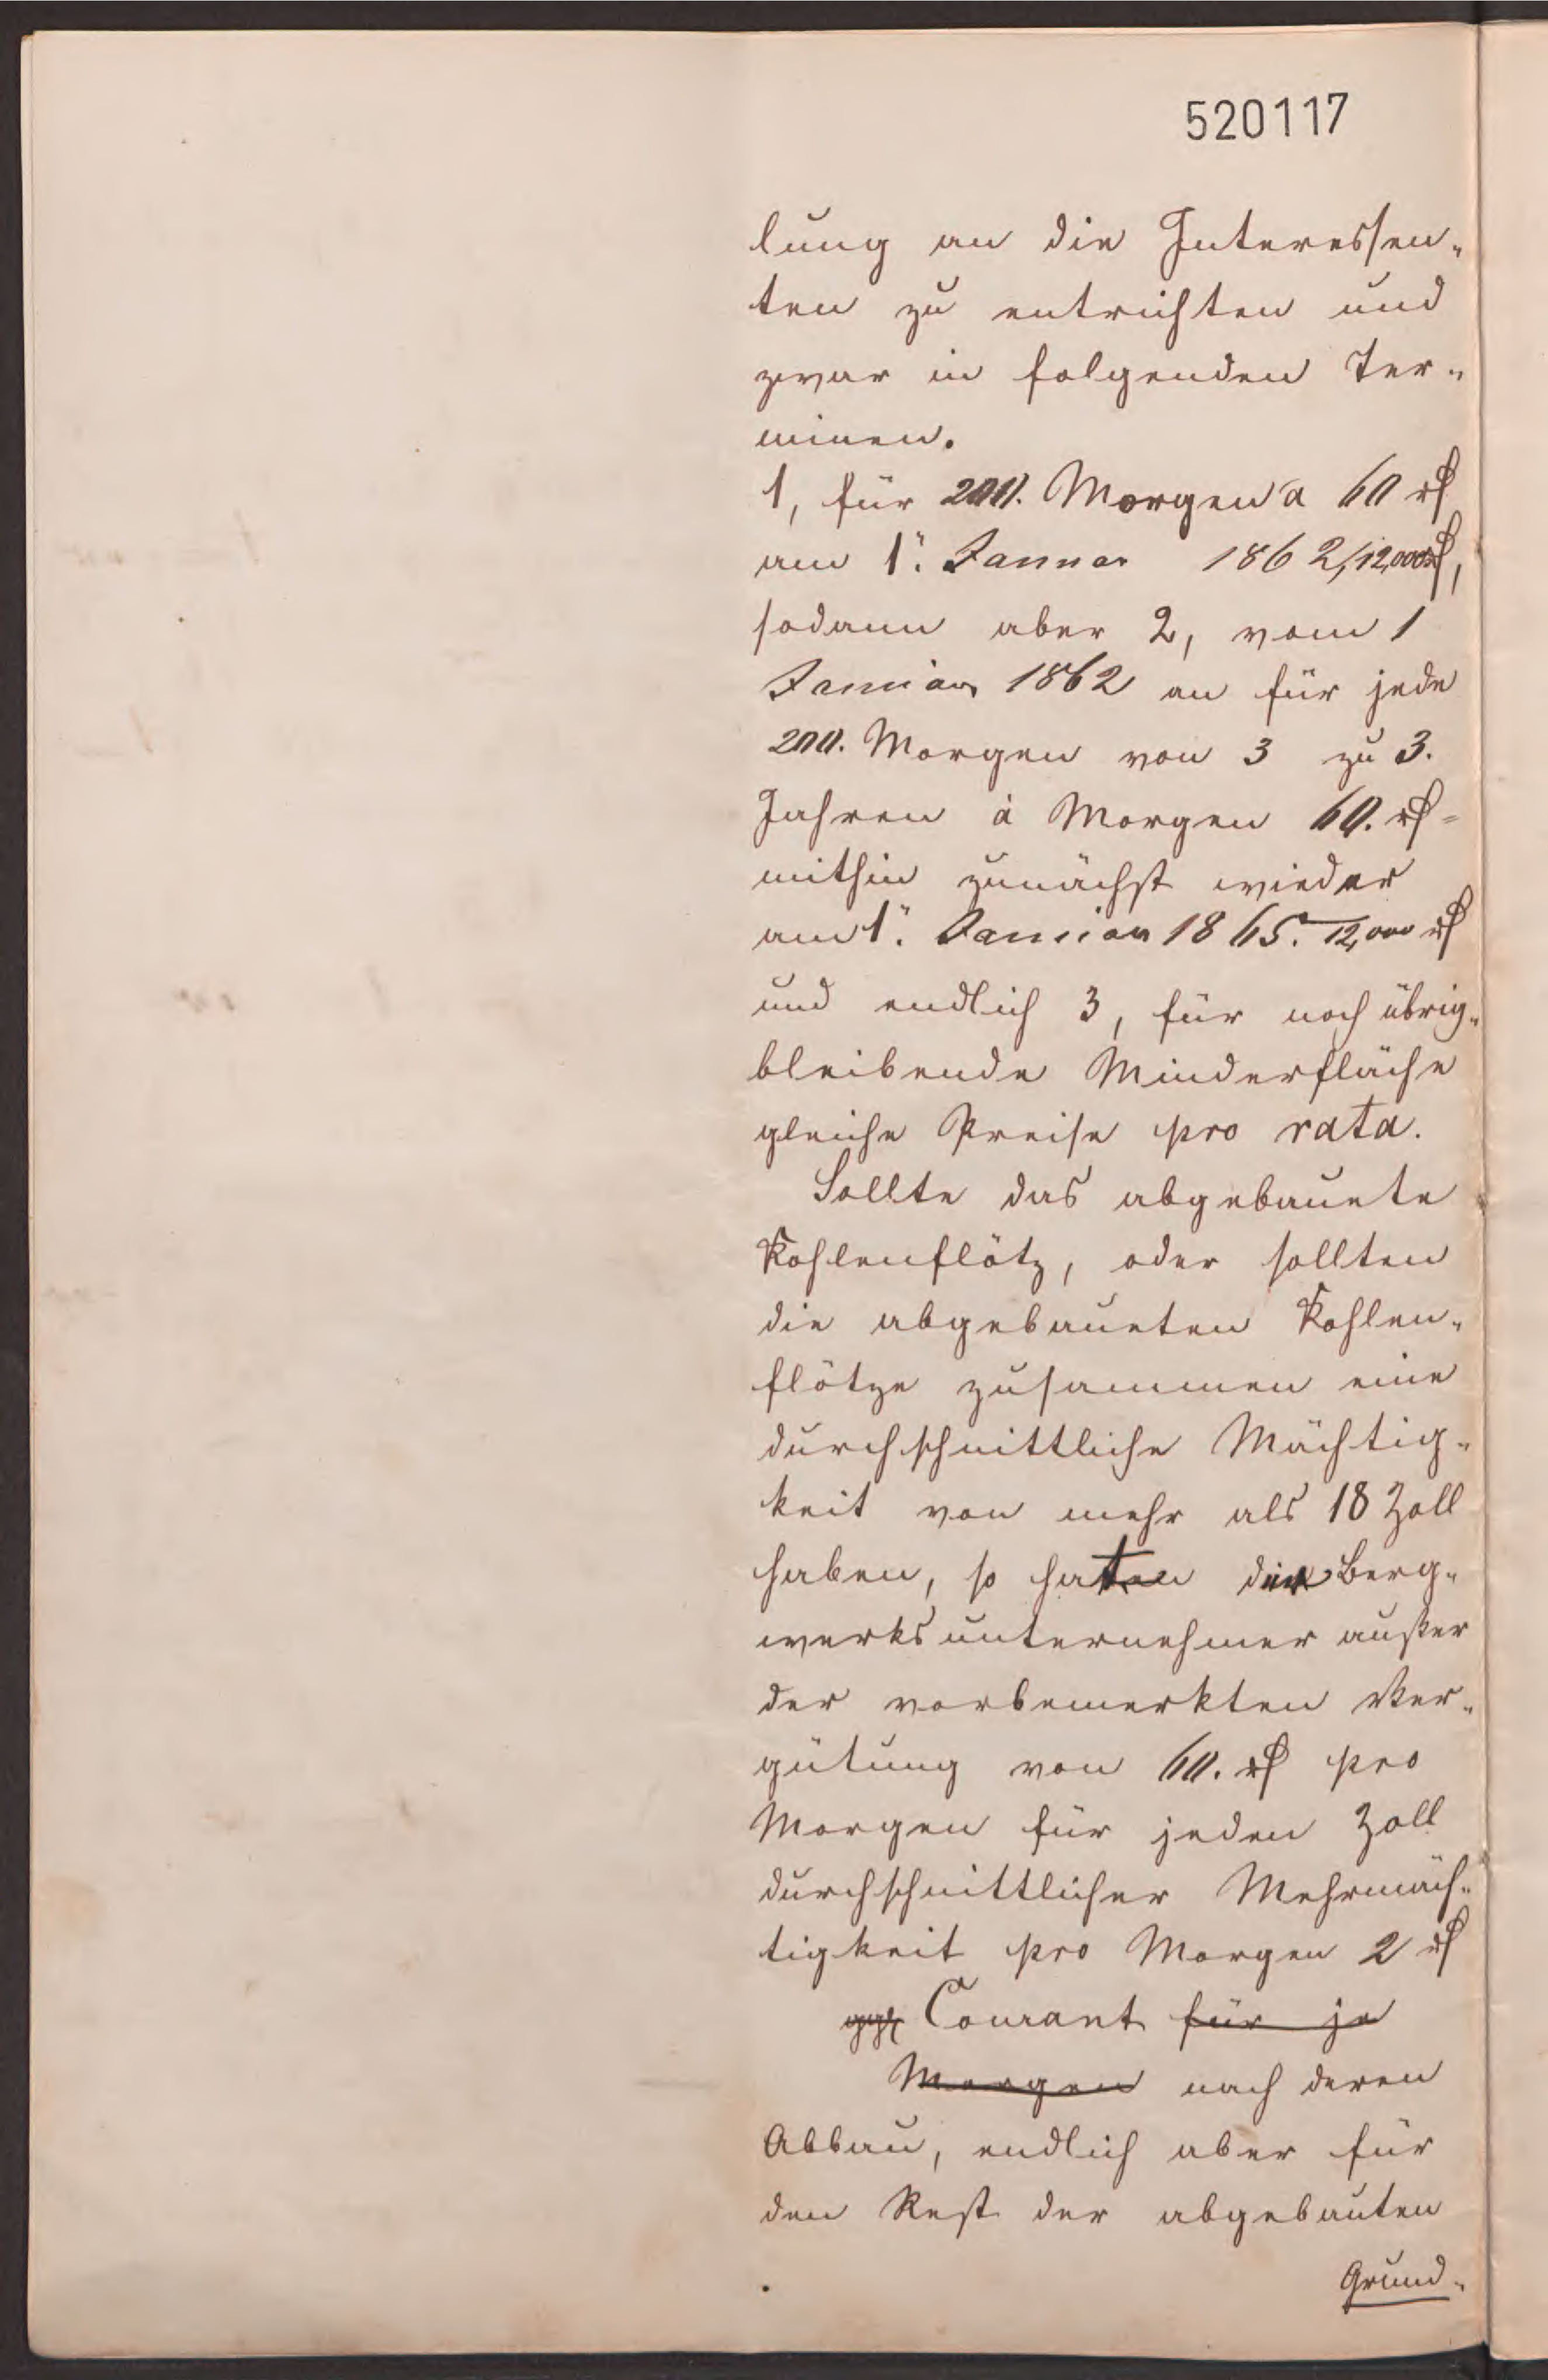 520117
lung an die Interessen-
ten zu entrichten und
zwar in folgenden Ter-
minen.
1, für 200. Morgen a 60 rℓ
am 1". Januar 1862, 12,000 rℓ,
sodann aber 2, vom 1
Januar 1862 an für jede
200. Morgen von 3 zu 3.
Jahren à Morgen 60. rℓ =
mithin zunächst wieder
am 1". Januar 1865. 12,000 rℓ
und endlich 3, für noch übrig-
bleibende Minderfläche
gleiche Preise pro rata.
Sollte das abgebauete
Kohlenflötz, oder sollten
die abgebaueten Kohlen-
flötze zusammen eine
durchschnittliche Mächtig-
keit von mehr als 18 Zoll
haben, so hat der Berg-
werksunternehmer außer
der vorbemerkten Ver-
gütung von 60. rℓ pro
Morgen für jeden Zoll
durchschnittlicher Mehrmäch-
tigkeit pro Morgen 2 rℓ
Courant für je
Morgen nach deren
Abbau, endlich aber für
den Rest der abgebauten
Grund-